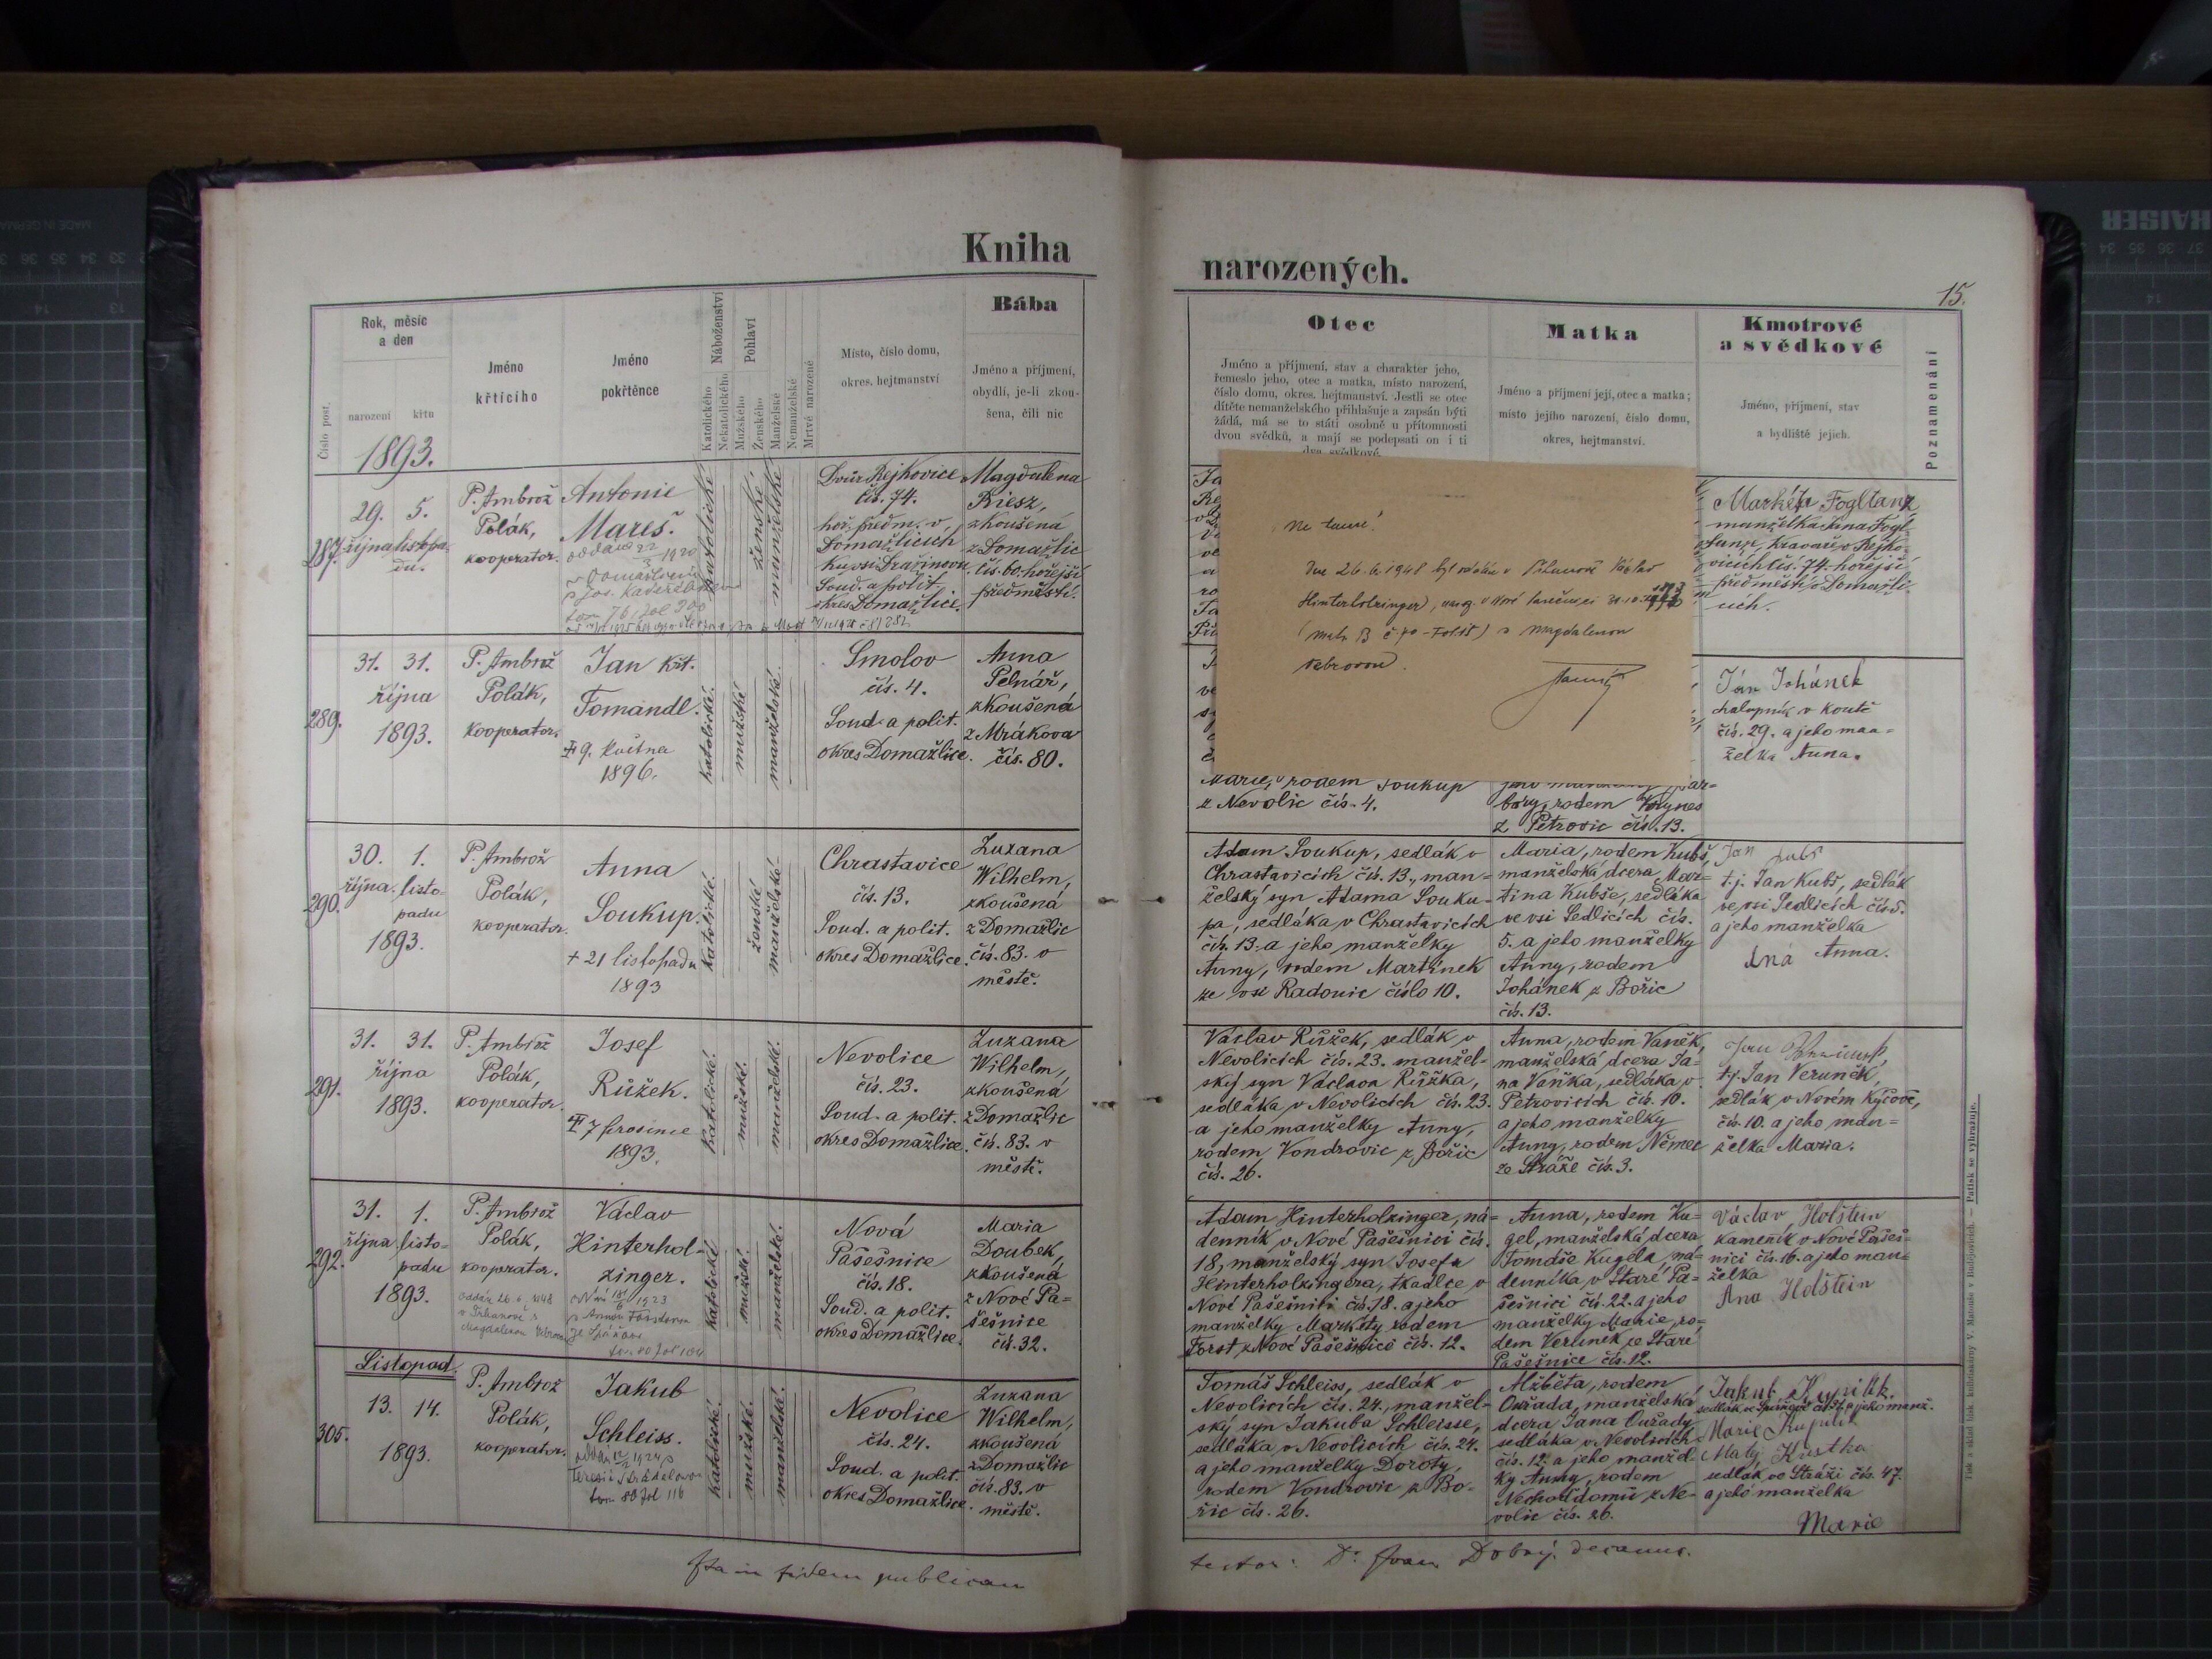 Kniha
narozených.
15.
Číslo post.
Rok, měsíc
a den
narození
křtu
1893.
Jméno
křtícího
Jméno
pokřtěnce
Náboženství
Katolického
Nekatolického
Pohlaví
Mužského
Ženského
Manželské
Nemanželské
Mrtvě narozené
Místo, číslo domu,
okres. hejtmanství
Bába
Jméno a příjmení,
obydlí, je-li zkou-
šena, čili nic
Otec
Jméno a příjmení, stav a charakter jeho,
řemeslo jeho, otec a matka, místo narození,
číslo domu, okres. hejtmanství. Jestli se otec
dítěte nemanželského přihlašuje a zapsán býti
žádá, má se to státi osobně u přítomnosti
dvou svědků, a mají se podepsati on i ti
dva svědkové.
Matka
Jméno a příjmení její, otec a matka;
místo jejího narození, číslo domu,
okres, hejtmanství.
Kmotrové
a svědkové
Jméno, příjmení, stav
a bydliště jejich.
Poznamenání
287.
29. 5.
října listopa-
du.
P. Ambrož
Polák,
kooperator.
Antonie
Mareš.
katolické
ženské
manželské
Dvůr Rejkovice
čís. 74.
hoř. předm. v
Domažlicích
Soud. a polit.
okres Domažlice.
Magdalena
Riesz,
zkoušená
z Domažlic
čís. 60. hořejší
předměstí.
Markéta Fogltanz
manželka Jana Fogl-
tanze, kravaře v Rejko-
vicích čís. 74. hořejší
předměstí v Domažli-
cích.
Dne 26.6.1948 byl oddán v Václav
Hinterholzinger,
s Magdalenou
289.
31. 31.
října
1893.
P. Ambrož
Polák,
kooperator.
Jan Křt.
Tomandl.
9. května
1896.
katolické.
mužské
manželské.
Smolov
čís. 4.
Soud. a polit.
okres Domažlice.
Anna
Pelnář,
zkoušená
z Mrákova
čís. 80.
Marie, rodem Soukup
z Nevolic čís. 4.
báry, rodem
z Petrovic čís. 13.
Ján Johánek
chalupník v Koutě
čís. 29. a jeho man-
želka Anna.
290.
30. 1.
října. listo-
padu
1893.
P. Ambrož
Polák,
kooperator.
Anna
Soukup.
+ 21 listopadu
1893
katolické.
ženské
manželské.
Chrastavice
čís. 13.
Soud. a polit.
okres Domažlice.
Zuzana
Wilhelm,
zkoušená
z Domažlic
čís. 83. v
městě.
Adam Soukup, sedlák v
Chrastavicích čís. 13., man-
želský syn Adama Souku-
pa, sedláka v Chrastavicích
čís. 13. a jeho manželky
Anny, rodem Martínek
ze vsi Radonic číslo 10.
Maria, rodem Kubš,
manželská dcera Mar-
tina Kubše, sedláka
ve vsi Sedlicích čís.
5. a jeho manželky
Anny, rodem
Johánek z Bořic
čís. 13.
Jan Kubš
t.j. Jan Kubš, sedlák
ve vsi Sedlicích čís 5.
a jeho manželka
Anna.
291.
31. 31.
října
1893.
P. Ambrož
Polák,
kooperator.
Josef
Růžek.
7 prosince
1893.
katolické.
mužské.
manželské.
Nevolice
čís. 23.
Soud. a polit.
okres Domažlice.
Zuzana
Wilhelm,
zkoušená
z Domažlic
čís. 83. v
městě.
Václav Růžek, sedlák v
Nevolicích čís. 23. manžel-
ský syn Václava Růžka,
sedláka v Nevolicích čís. 23.
a jeho manželky Anny,
rodem Vondrovic z Bořic
čís. 26.
Anna, rodem Vaněk,
manželská dcera Ja-
na Vaňka, sedláka v
Petrovicích čís. 10.
a jeho manželky
Anny, rodem Němec
ze Stráže čís. 3.
t.j. Jan Veruněk,
sedlák v Novém Kyčově,
čís. 10. a jeho man-
želka Maria.
292.
31. 1.
října listo-
padu
1893.
P. Ambrož
Polák,
kooperator.
Václav
Hinterhol-
zinger.
katolické
mužské.
manželské.
Nová
Pašešnice
čís. 18.
Soud. a polit.
okres Domažlice.
Maria
Doubek,
zkoušená
z Nové Pa-
šešnice
čís. 32.
Adam Hinterholzinger, ná-
denník v Nové Pašešnici čís.
18, manželský syn Josefa
Hinterholzingera, tkadlce v
Nové Pašešnici čís. 18. a jeho
manželky Markéty rodem
Forst z Nové Pašešnici čís. 12.
Anna, rodem Ku-
gel, manželská dcera
Tomáše Kugela, ná-
denníka v Staré Pa-
šešnici čís. 22. a jeho
manželky Marie, ro-
dem Verunek ze Staré
Pašešnice čís. 12.
Václav Holštein
kameník v Nové Pašeš-
nici čís. 16. a jeho man-
želka
Ana Holštein
Listopad.
305.
13. 14.
1893.
P. Ambrož
Polák,
kooperator.
Jakub
Schleiss.
tom 80 fol 116
katolické.
mužské.
manželské.
Nevolice
čís. 24.
Soud. a polit.
okres Domažlice.
Zuzana
Wilhelm,
zkoušená
z Domažlic
čís. 83. v
městě.
Tomáš Schleiss, sedlák v
Nevolicích čís. 24., manžel-
ský syn Jakuba Schleisse,
sedláka v Nevolicích čís. 24.
a jeho manželky Doroty,
rodem Vondrovic z Bo-
řic čís. 26.
Alžběta, rodem
Ouřada, manželská
dcera Jana Ouřady
sedláka v Nevolicích
čís. 12. a jeho manžel-
ky Anny, rodem
Nechoďdomů z Ne-
volic čís. 26.
a jeho manž.
Matěj
sedlák ve Stráži čís. 47.
a jeho manželka
Marie
Ita in fidem publicam
testor: Dr. Joan Dobrý. decanus.
KAISER
MADE IN GERMANY